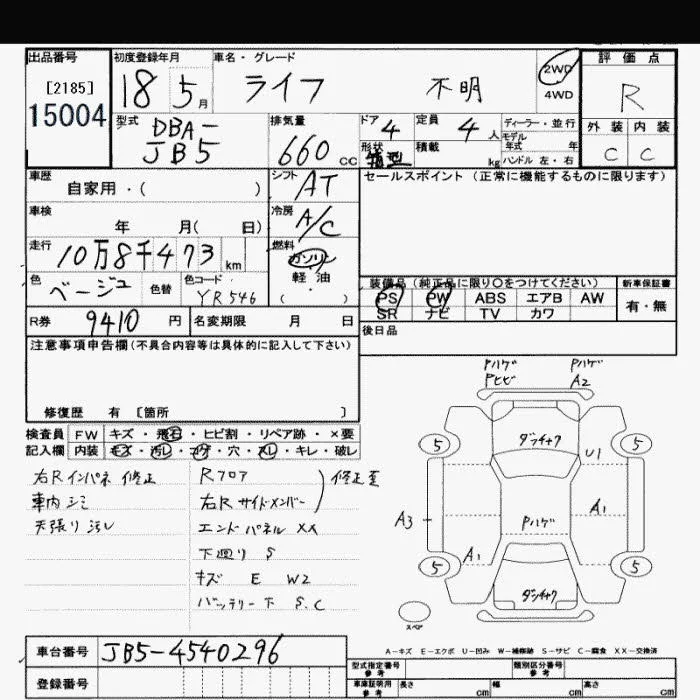 出品番号 初度登録年月 車名・グレード 2WD 4WD 評価点
[2185] 15004 18 5月 ライフ 不明 R
型式 DBA-JB5 排気量 660 CC ドア 4 形状 箱型 定員 4人 積載 kg ディーラー・並行 モデル年式 年 ハンドル 左・右 外装 内装
C C
車歴 自家用・( ) シフト AT セールスポイント (正常に機能するものに限ります)
車検 年 月( 日) 冷房 A/C
走行 10万8千473 km 燃料 ガソリン 軽油 ( ・ )
色 ベージュ 色替 色コード YR546
装備品 (純正品に限り○をつけてください) 新車保証書
PS PW ABS エアB AW 有・無
SR ナビ TV カワ
R券 9410 円 名変期限 月 日 後日品
注意事項申告欄(不具合内容等は具体的に記入して下さい)
修復歴 有 [箇所 ]
検査員 FW キズ・飛石・ヒビ割・リペア跡・×要
記入欄 内装 キズ・汚レ・コゲ・穴・スレ・キレ・破レ
右Rインパネ 修正 Rフロア
車内シミ 右Rサイドメンバー 修正歪
天張り汚レ エンドパネル XX
下廻り S
キズ E W2
バッテリー下 S.C
Pハゲ Pハゲ
Pヒビ A2
5 ダンチャク 5
U1
A3 Pハゲ A1
A1
5 5
ダンチャク
スペア
A-キズ E-エクボ U-凹み W-補修跡 S-サビ C-腐食 XX-交換済
車台番号 JB5-4540296
登録番号
型式指定番号 参考 類別区分番号 参考
車庫証明用 参考 長さ cm 幅 cm 高さ cm